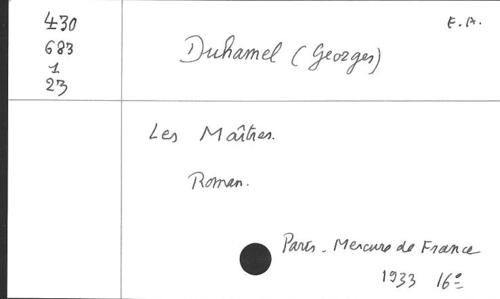 430
683
1
23
E. A.
Duhamel (Georges)
Les Maîtres.
Roman.
Paris - Mercure de France
1933 16º